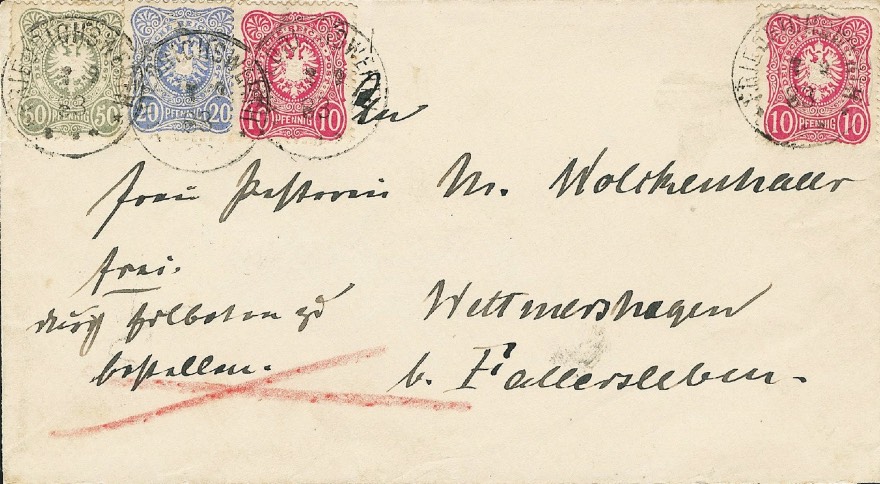 50 PFENNIG 50
20 PFENNIG 20
10 PFENNIG 10
10 PFENNIG 10
An
Frau Pastorin M. Wolckenhauer
frei.
durch Eilboten zu
bestellen.
Wettmershagen
b. Fallersleben.